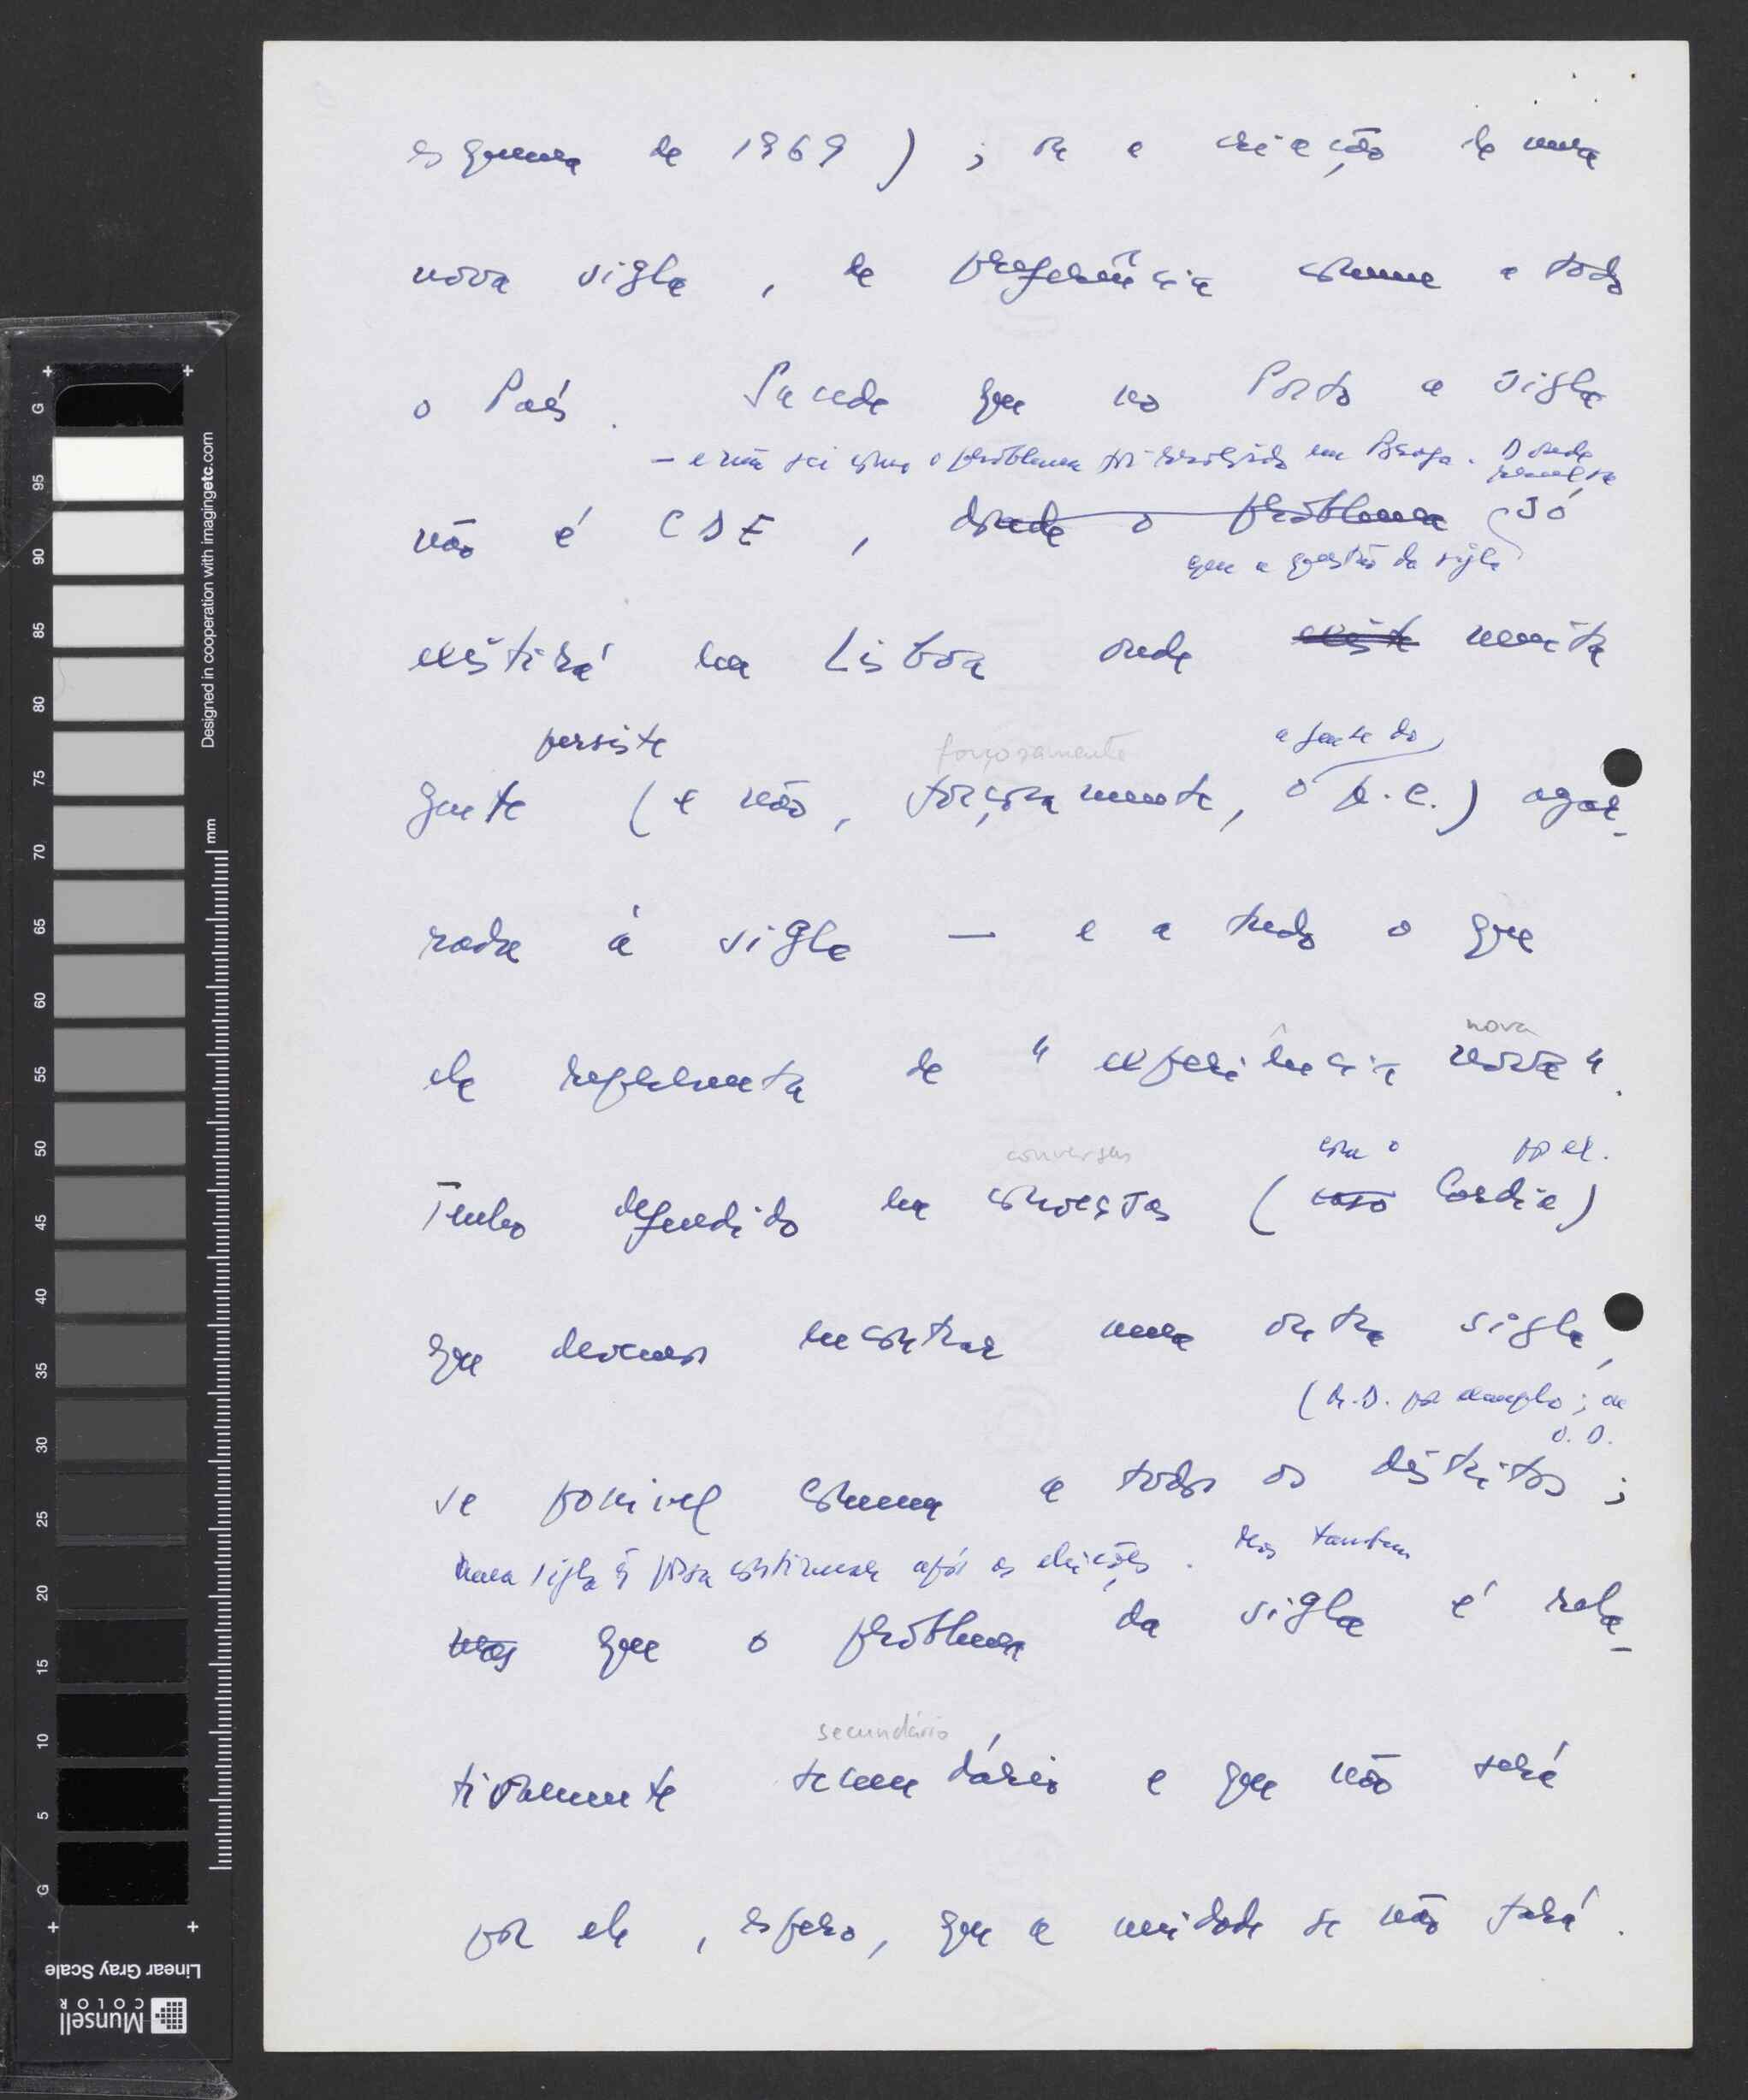 esquema de 1969 ) ; ou a criação de uma
nova sigla , de preferência comum a todo
o País . Sucede que no Porto a sigla
— e não sei como o problema foi resolvido em Braga . Donde
resulta
não é CDE , donde o problema só
que a questão da sigla
existirá em Lisboa onde existe muita
persiste forçosamente a gente do
gente ( e não , forçosamente , o p.c. ) agar-
rada à sigla — e a tudo o que
nova
ela representa de " experiência nova " .
conversas com o por ex.
Tenho defendido em conversas ( caso Cardia )
que devemos encontrar uma outra sigla ,
( A.D. por exemplo ; ou
O.D.
se possivel comum a todos os distritos ;
uma sigla q possa continuar após as eleições . Mas tambem
mas que o problema da sigla é rela-
secundário
tivamente secundário e que não será
por ela , espero , que a unidade se não fará .
G
95
90
85
80
75
70
65
60
55
50
45
40
35
30
25
20
15
10
5
G
mm
Designed in cooperation with imagingetc.com
Linear Gray Scale
Munsell
COLOR